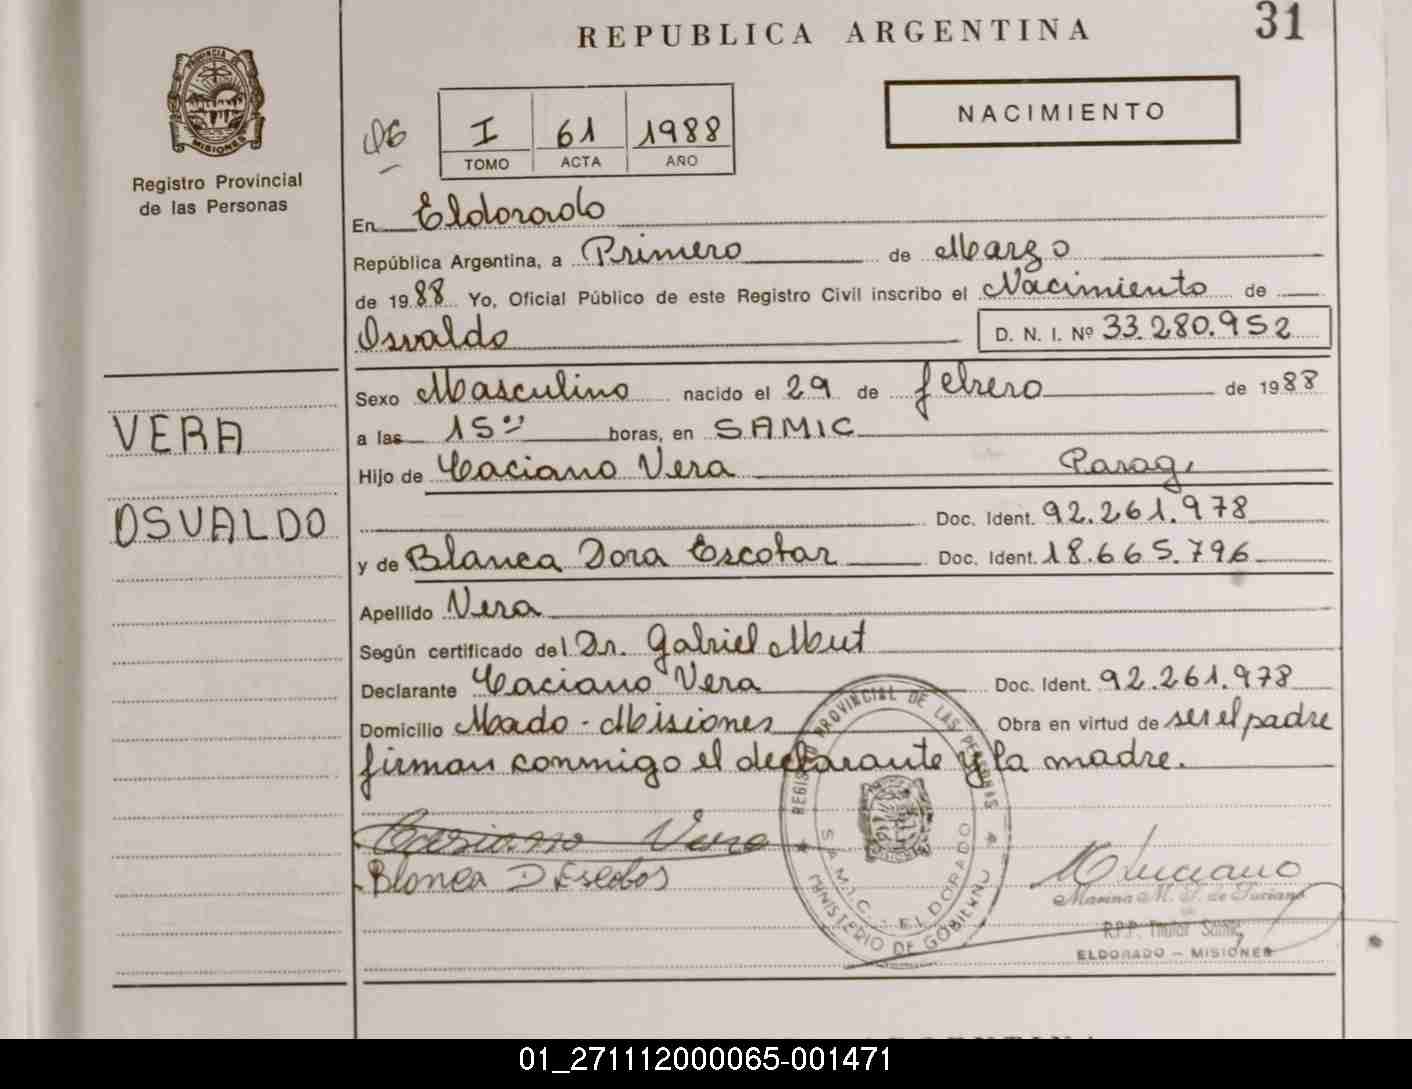 31
REPUBLICA ARGENTINA
PROVINCIA DE MISIONES
Registro Provincial
de las Personas
NACIMIENTO
I 61 1988
TOMO ACTA AÑO
En Eldorado
República Argentina, a Primero de Marzo
de 1988 Yo, Oficial Público de este Registro Civil inscribo el Nacimiento de
Osvaldo D. N. I. Nº 33.280.952
Sexo Masculino nacido el 29 de febrero de 1988
VERA
a las 15 horas, en SAMIC
Hijo de Caciano Vera Parag.
OSVALDO
Doc. Ident. 92.261.978
y de Blanca Dora Escobar Doc. Ident. 18.665.796
Apellido Vera
Según certificado del Dr. Gabriel Mut
Declarante Caciano Vera Doc. Ident. 92.261.978
Domicilio Mado - Misiones Obra en virtud de ser el padre
firman conmigo el declarante y la madre.
REGISTRO PROVINCIAL DE LAS PERSONAS
S.A.M.I.C. - ELDORADO
MINISTERIO DE GOBIERNO
Vera
Blanca D Escobar
M Luciano
Marina M. de Luciano
R.P.P. Titular Samic
ELDORADO - MISIONES
01_271112000065-001471